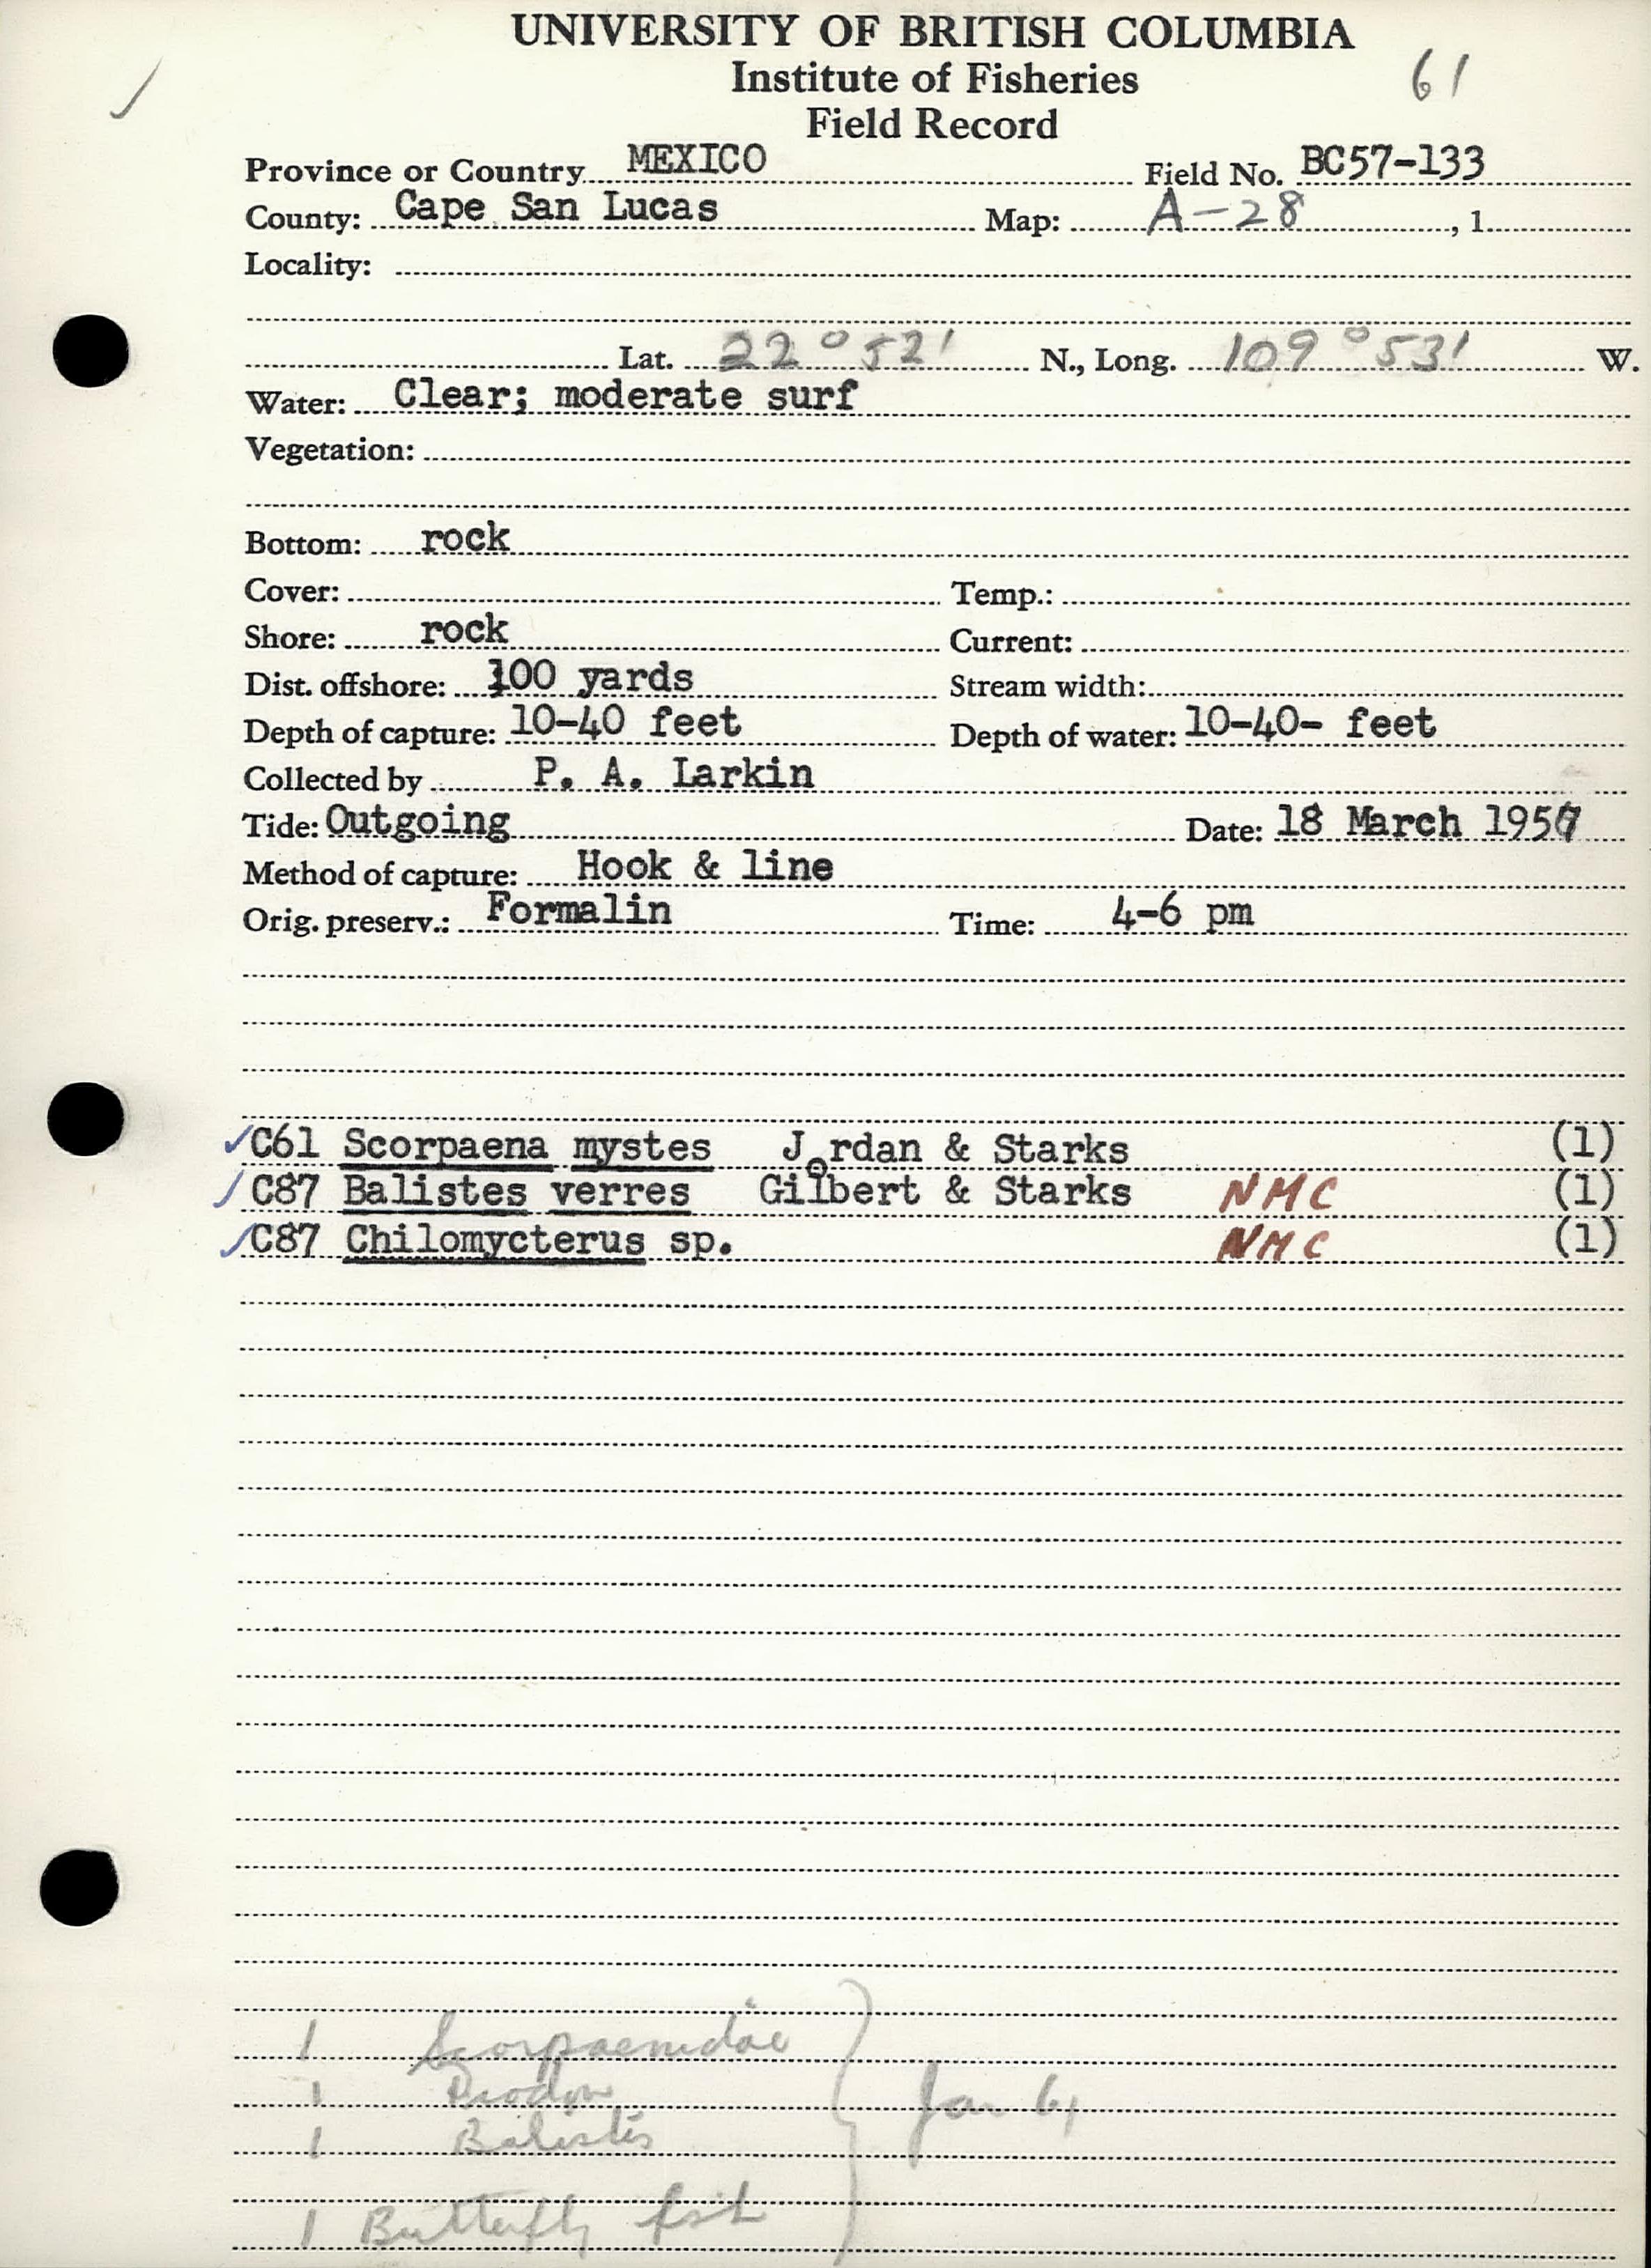 UNIVERSITY OF BRITISH COLUMBIA
Institute of Fisheries
61
Field Record
Province or Country MEXICO Field No. BC57-133
County: Cape San Lucas Map: A-28, 1.
Locality:
Lat. 22°52' N., Long. 109°53' W.
Water: Clear; moderate surf
Vegetation:
Bottom: rock
Cover: Temp.:
Shore: rock Current:
Dist. offshore: 100 yards Stream width:
Depth of capture: 10-40 feet Depth of water: 10-40- feet
Collected by P. A. Larkin
Tide: Outgoing Date: 18 March 1957
Method of capture: Hook & line
Orig. preserv.: Formalin Time: 4-6 pm
✓C61 Scorpaena mystes Jordan & Starks (1)
✓C87 Balistes verres Gilbert & Starks NMC (1)
✓C87 Chilomycterus sp. NMC (1)
1 Scorpaenidae
1
1 Balistes
Jan 61
1 Butterfly fish